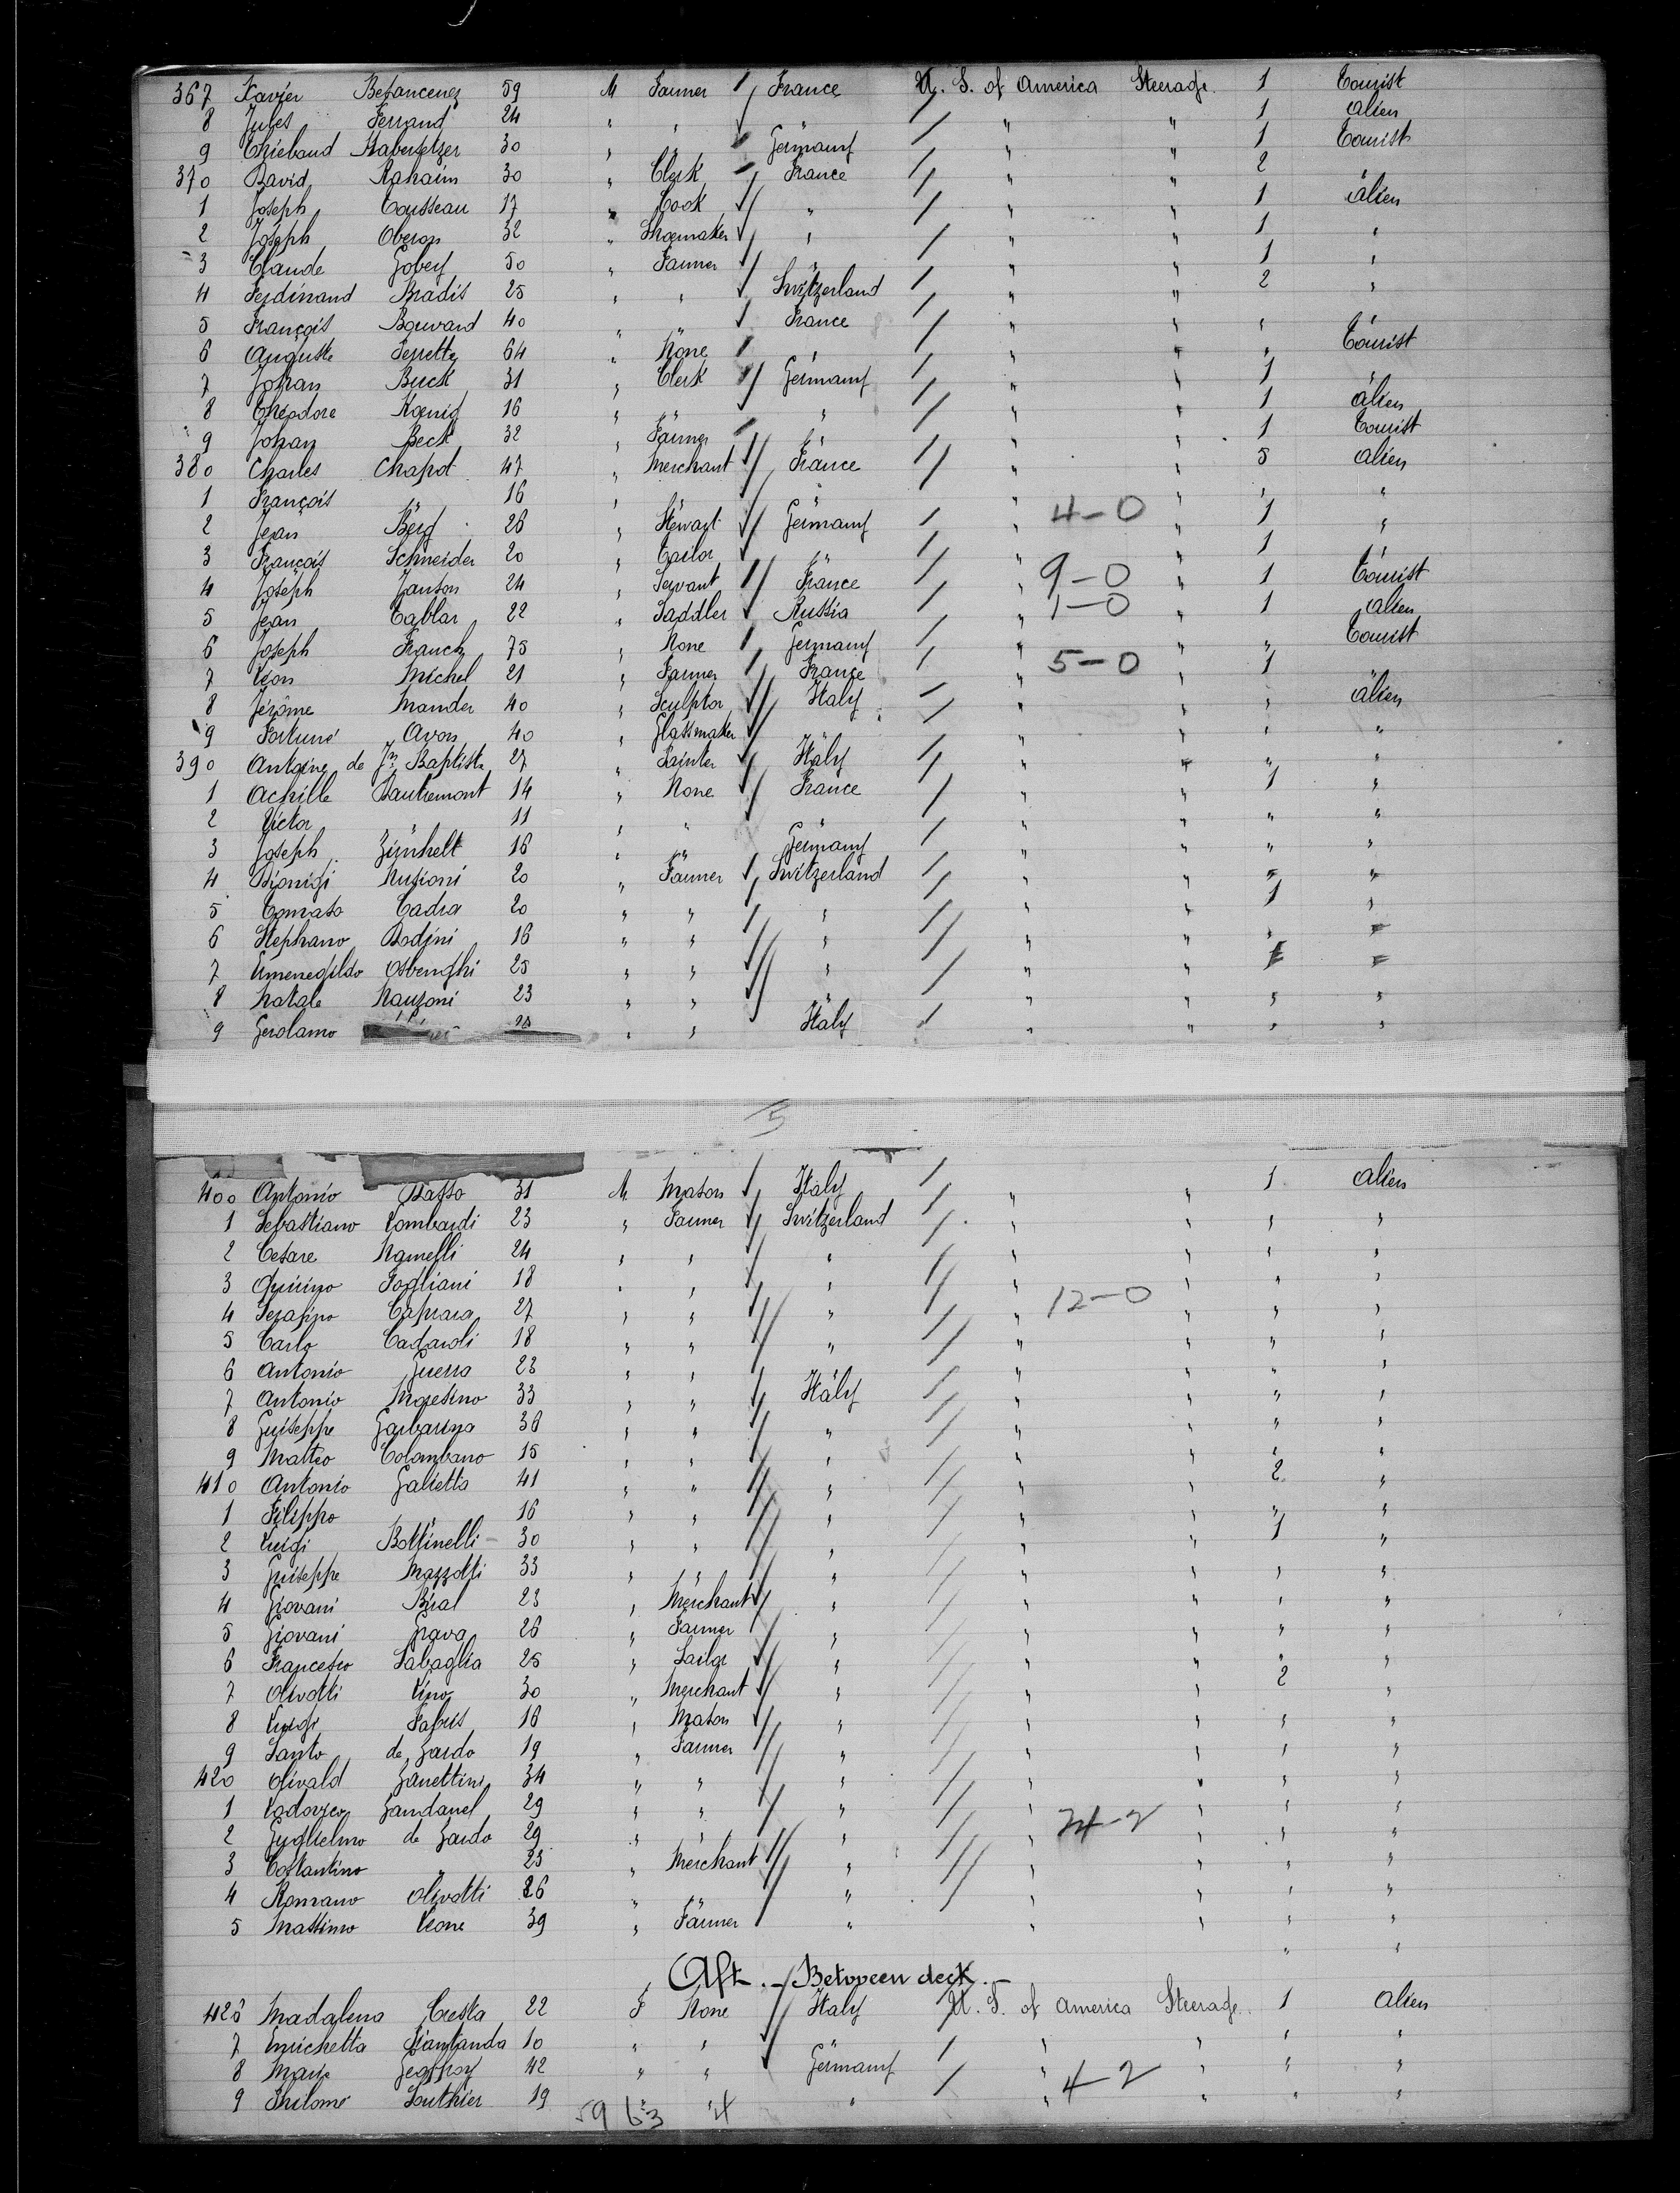 367 Xavier Betancenez 59 M Farmer France U. S. of America Steerage 1 Tourist
8 Jules Ferrand 24 " " " " " 1 alien
9 Thiebaud Habersetzer 30 " " Germany " " 1 Tourist
370 David Rahaim 30 " Clerk France " " 2
1 Joseph Cousseau 17 " Cook " " " 1 alien
2 Joseph Oberon 32 " Shoemaker " " " 1 "
3 Claude Gobey 50 " Farmer " " " 1 "
4 Ferdinand Bradis 25 " " Switzerland " " 2 "
5 François Bouvard 40 " " France " " "
6 Auguste Ferrette 64 " None " " " " Tourist
7 Johan Buck 31 " Clerk Germany " " 1 "
8 Théodore Kœnig 16 " " " " " 1 alien
9 Johan Beck 32 " Farmer " " " 1 Tourist
380 Charles Chapot 47 " Merchant France " " 5 alien
1 François " 16 " " " " " "
2 Jean Berg 26 " Stewart Germany " 4-0 " 1 "
3 François Schneider 20 " Tailor " " " 1 "
4 Joseph Janson 24 " Servant France " 9-0 " 1 Tourist
5 Jean Tablar 22 " Saddler Russia " 1-0 " 1 alien
6 Joseph Franck 75 " None Germany " " " Tourist
7 Léon Michel 21 " Farmer France " 5-0 " 1
8 Jérôme Mander 40 " Sculptor Italy " " " alien
9 Fortuné Avon 40 " Glassmaker " " " "
390 Antoine de Jn Baptiste 27 " Painter Italy " " " "
1 Achille Dautremont 14 " None France " " 1 "
2 Victor " 11 " " " " " "
3 Joseph Zimhelt 16 " " Germany " " " "
4 Dionigi Rusioni 20 " Farmer Switzerland " " " "
5 Tomaso Cadra 20 " " " " " 1 "
6 Stephano Bodini 16 " " " " " " "
7 Emenegildo Osbenghi 25 " " " " " " "
8 Natale Manzoni 23 " " " " " "
9 Gerolamo " " Italy " " " "
5
400 Antonio Basso 31 M Mason Italy 1 alien
1 Sebastiano Lombardi 23 " Farmer Switzerland " " " "
2 Cesare 24 " " " " " " "
3 Quirino Fogliani 18 " " " " " " "
4 Serafino Caprara 27 " " " " 12-0 " " "
5 Carlo Cadaroli 18 " " " " " " "
6 Antonio Guerra 23 " " " " " "
7 Antonio Moresino 33 " " Italy " " " "
8 Guiseppe Garbarino 36 " " " " " " "
9 Matteo Colombano 15 " " " " " " "
410 Antonio Galletta 41 " " " " " 2 "
1 Filippo " 16 " " " " " " "
2 Luigi Bottinelli 30 " " " " " 1 "
3 Guiseppe Mazzotti 33 " " " " " " "
4 Giovani Biral 23 " Merchant " " " " "
5 Giovani Grava 26 " Farmer " " " " "
6 Francesco Sabaglia 25 " Sailor " " " " "
7 Olivotti Lino 30 " Merchant " " " 2 "
8 Luigi Fabris 16 " Mason " " " " "
9 Santo de Zardo 19 " Farmer " " " " "
420 Olivald Zanettini 34 " " " " " " "
1 Lodovico Zandanel 29 " " " " " " "
2 Guglielmo de Zardo 29 " " " " 24-2 " " "
3 Costantino " 23 " Merchant " " " " "
4 Romano Olivotti 26 " " " " " " "
5 Massimo Leone 39 " Farmer " " " " "
Aft. - Between deck. -
426 Madalena Cresta 22 F None Italy U. S. of America Steerage. 1 alien
7 Enrichetta Fiantanda 10 " " " " " "
8 Marie Geoffroy 42 " " Germany " " " "
9 Philomé Southier 19 " " 4-2 " " "
59 63 4